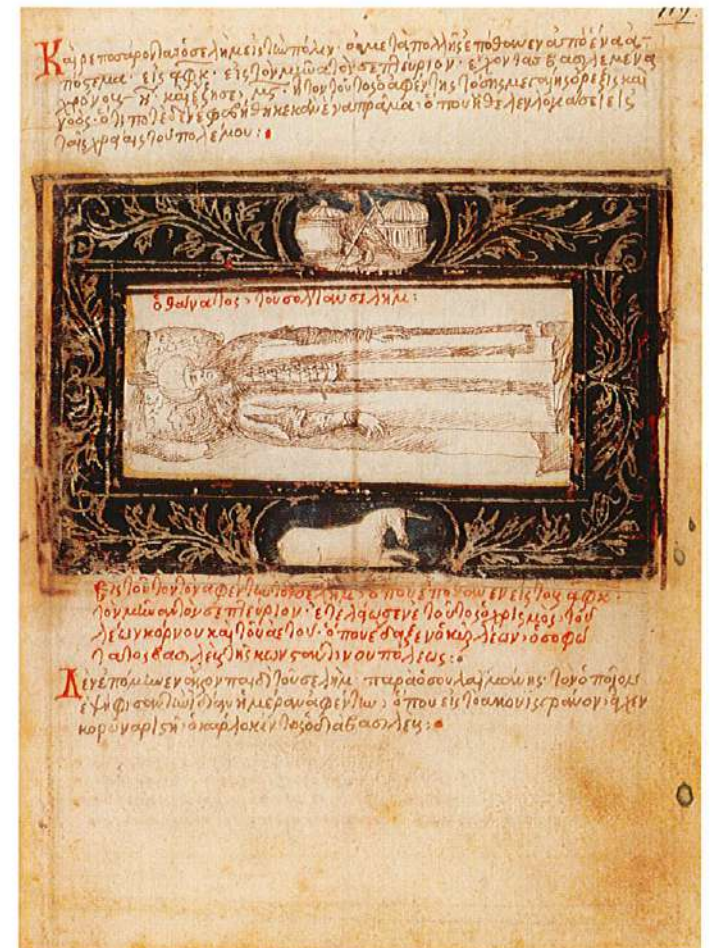 Καὶ ρεποσάροντα ὁ σελὴμ εἰς τὴν πόλιν · οὐ μετὰ πολλῆς ἐπόθανεν ἀπὸ ἕνα ἀ-
πόστεμα · εἰς ͵αφκ · εἰς τὸν μῆνα τὸν σεπτεύριον · ἔχοντας βασιλεμένα
χρόνους η καὶ ἔζησε μς · ἦτον τοῦτος ὁ ἀφέντης τόσης μεγάλης ὄρεξις καὶ
νοός · ὅτι ποτὲ δὲν ἐφοβήθηκε κανένα πράμα · ὁποῦ ἤθελεν εἰς
ταῖς χραίαις τοῦ πολέμου :
ὁ θάνατος τοῦ σολτὰν σελήμ :
Εἰς τοῦτον τὸν ἀφέντην τὸν σελήμ · ὁποῦ ἐπόθανεν εἰς τὸς ͵αφκ ·
τὸν μῆναν τὸν σεπτεύριον · ἐτελείωσενε τοῦτος ὁ χρισμὸς · τοῦ
λεωνκόρνου καὶ τοῦ ἀετοῦ · ὁποῦ ἔδειξεν ὁ κὺρ λέων · ὁ σοφώ
τατος βασιλεὺς τῆς κωνσταντινουπόλεως :
Δὲν ἐπόμεινεν ἄλλον παιδὶ τοῦ σελήμ · παρὰ ὁ σουλαϊμάνης · τὸν ὁποῖον
ἐψήφισαν τὴν ἰδίαν ἡμέραν ἀφέντην · ὁποῦ εἰς τὸ
κορωναρισθῆ · ὁ κάρλο κέντος ὁ βασιλεύς :